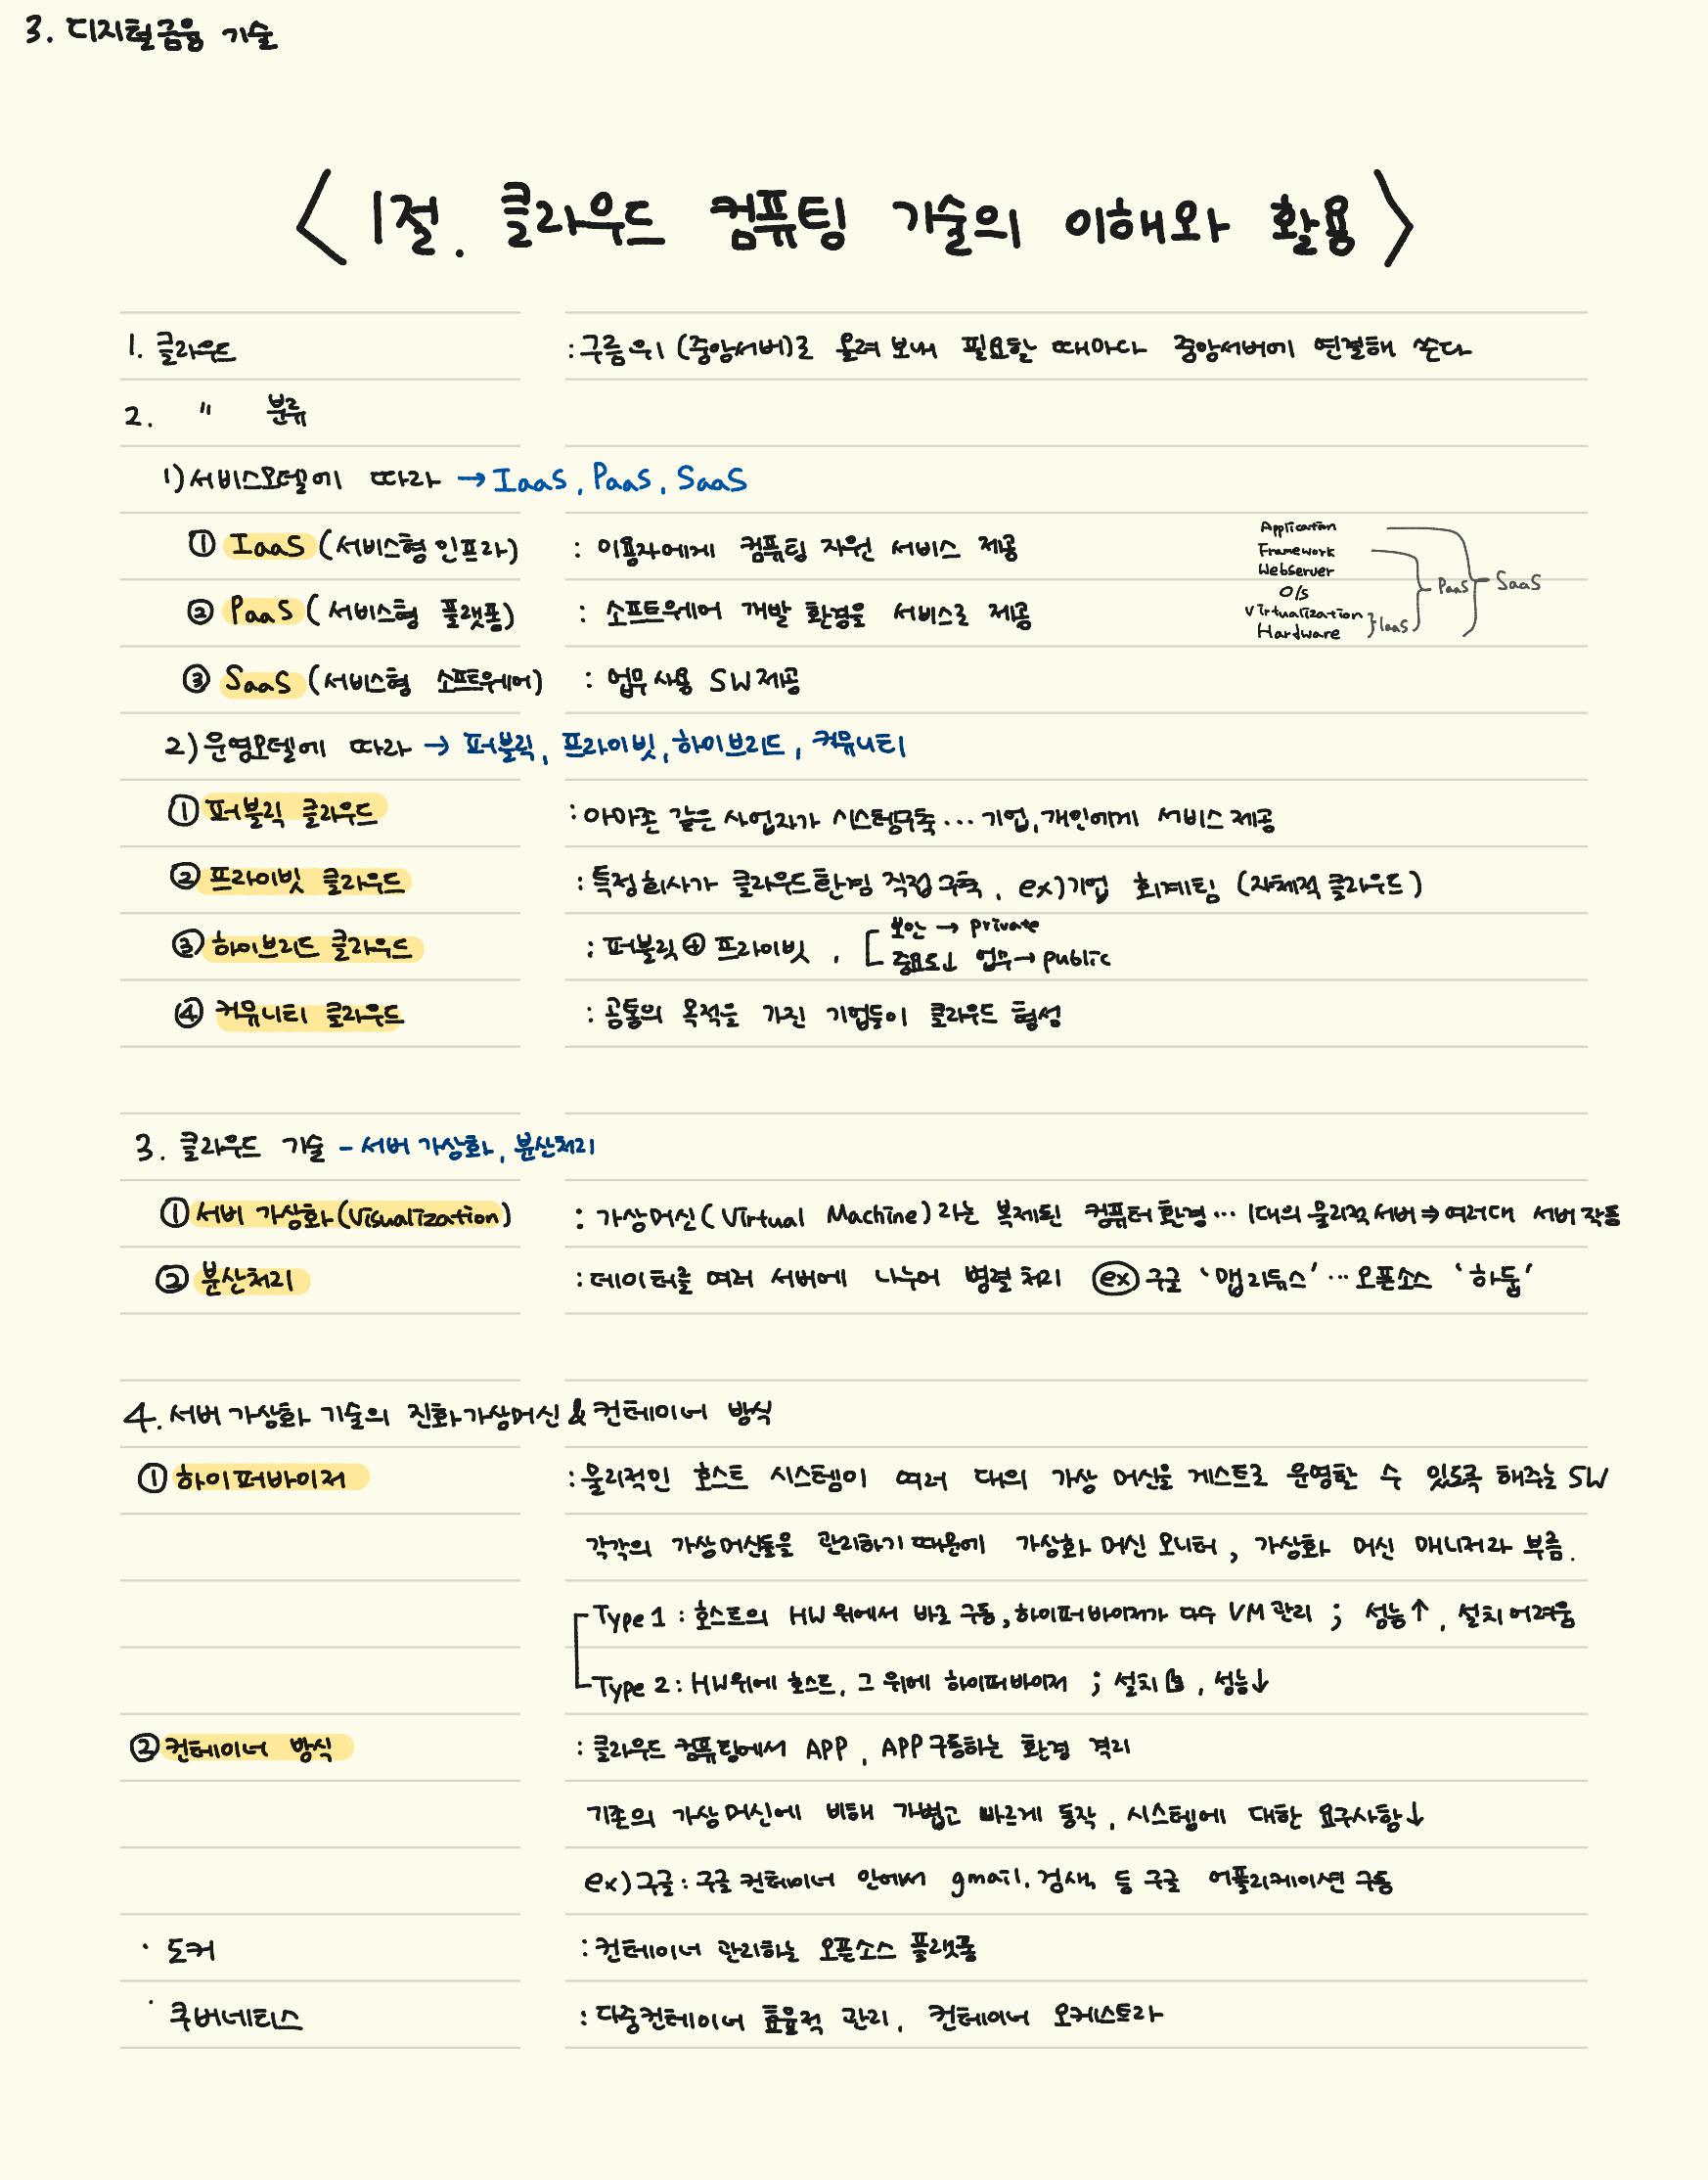 3. 디지털금융 기술
<1절. 클라우드 컴퓨팅 기술의 이해와 활용>
1. 클라우드 : 구름위 (중앙서버)로 올려 보내 필요할 때마다 중앙서버에 연결해 쓴다
2. " 분류
1) 서비스모델에 따라 → IaaS, PaaS, SaaS
① IaaS (서비스형 인프라) : 이용자에게 컴퓨팅 자원 서비스 제공
② PaaS (서비스형 플랫폼) : 소프트웨어 개발 환경을 서비스로 제공
③ SaaS (서비스형 소프트웨어) : 업무 사용 SW 제공
Application
Framework
Webserver
O/S
Virtualization
Hardware
IaaS
PaaS
SaaS
2) 운영모델에 따라 → 퍼블릭, 프라이빗, 하이브리드, 커뮤니티
① 퍼블릭 클라우드 : 아마존 같은 사업자가 시스템구축… 기업, 개인에게 서비스 제공
② 프라이빗 클라우드 : 특정 회사가 클라우드 환경 직접 구축, ex) 기업 회계팀 (자체적 클라우드)
③ 하이브리드 클라우드 : 퍼블릭 ⊕ 프라이빗,
보안 → private
중요도↓ 업무 → public
④ 커뮤니티 클라우드 : 공통의 목적을 가진 기업들이 클라우드 형성
3. 클라우드 기술 - 서버 가상화, 분산처리
① 서버 가상화(Visualization) : 가상머신(Virtual Machine)라는 복제된 컴퓨터 환경… 1대의 물리적 서버 ⇒ 여러대 서버 작동
② 분산처리 : 데이터를 여러 서버에 나누어 병렬 처리 ex) 구글 '맵리듀스'… 오픈소스 '하둡'
4. 서버 가상화 기술의 진화 가상머신 & 컨테이너 방식
① 하이퍼바이저 : 물리적인 호스트 시스템이 여러 대의 가상 머신을 게스트로 운영할 수 있도록 해주는 SW
각각의 가상머신들을 관리하기 때문에 가상화 머신 모니터, 가상화 머신 매니저라 부름.
Type 1 : 호스트의 HW 위에서 바로 구동, 하이퍼바이저가 다수 VM 관리 ; 성능↑, 설치 어려움
Type 2 : HW위에 호스트, 그 위에 하이퍼바이저 ; 설치 , 성능↓
② 컨테이너 방식 : 클라우드 컴퓨팅에서 APP, APP 구동하는 환경 격리
기존의 가상 머신에 비해 가볍고 빠르게 동작, 시스템에 대한 요구사항↓
ex) 구글 : 구글 컨테이너 안에서 gmail, 검색, 등 구글 어플리케이션 구동
· 도커 : 컨테이너 관리하는 오픈소스 플랫폼
· 쿠버네티스 : 다중컨테이너 효율적 관리, 컨테이너 오케스트라